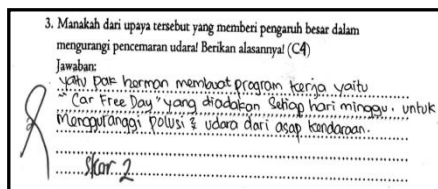 3. Manakah dari upaya tersebut yang memberi pengaruh besar dalam
mengurangi pencemaran udara! Berikan alasannya! (C4)
Jawaban:
yaitu pak herman membuat program kerja yaitu
"Car Free Day" yang diadakan Setiap hari minggu. untuk
Mengguranggi polusi 2 udara dari asap kendaraan.
skor 2